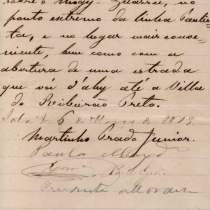 sobre o Mogy-Guassú, no
ponto extremo da linha Paulis
ta, e no lugar mais conve-
niente, bem como com a
abertura de uma estrada
que vá d'ahy até a Villa
do Ribeirão Preto.
Sala 6 de Março de 1878.
Martinho Prado Junior.
Prudente de Moraes